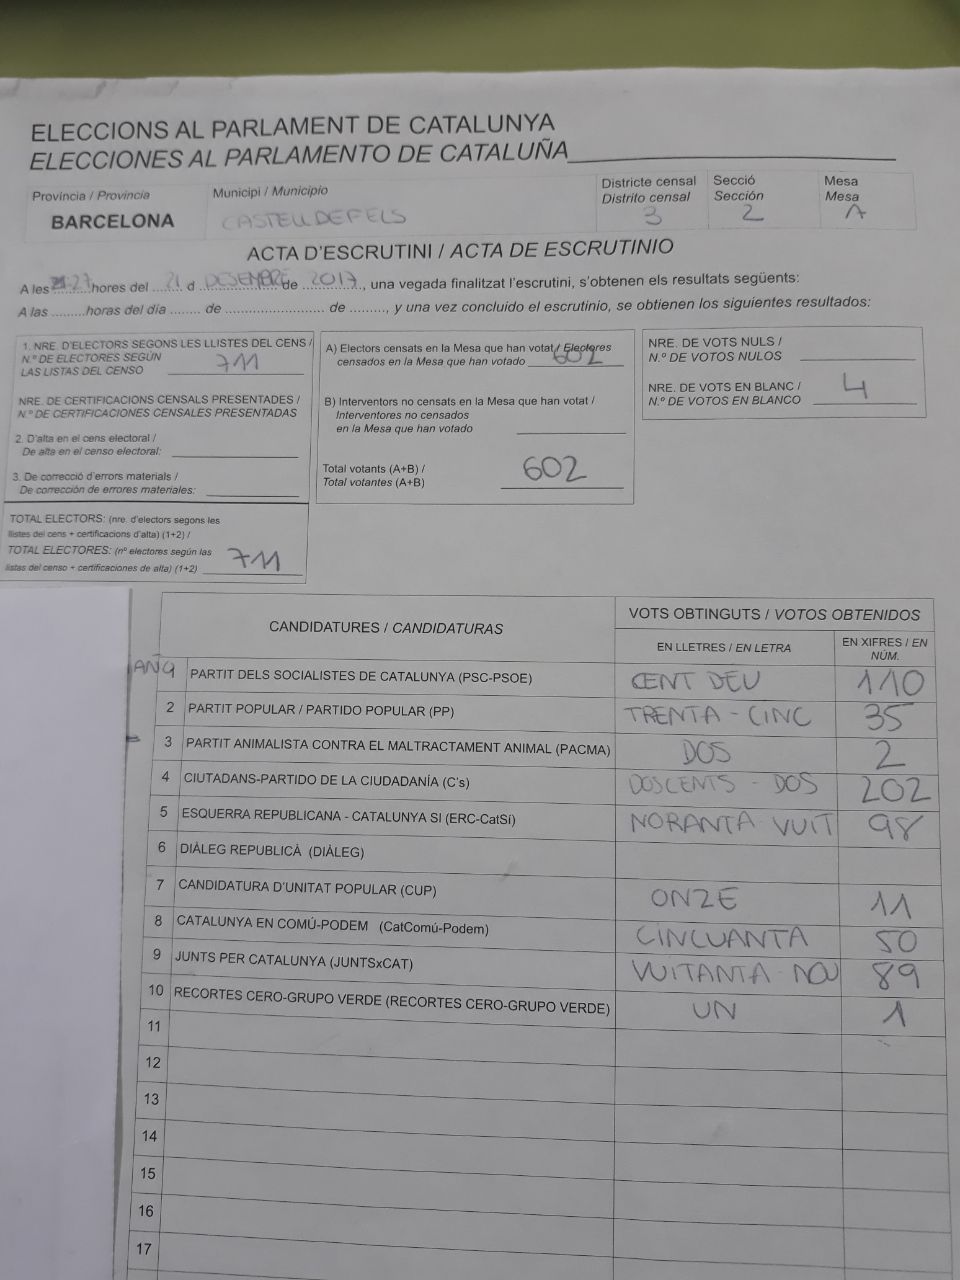 ELECCIONS AL PARLAMENT DE CATALUNYA
ELECCIONES AL PARLAMENTO DE CATALUÑA
Provincia / Provincia
BARCELONA
Municipi / Municipio
CASTELLDEFELS
Districte censal
Distrito censal
3
Secció
Sección
2
Mesa
Mesa
A
ACTA D'ESCRUTINI / ACTA DE ESCRUTINIO
A les hores del 21 d DESEMBRE de 2017, una vegada finalitzat l'escrutini, s'obtenen els resultats següents:
A las .........horas del día ........ de ......................... de ........., y una vez concluido el escrutinio, se obtienen los siguientes resultados:
1. NRE. D'ELECTORS SEGONS LES LLISTES DEL CENS /
N.º DE ELECTORES SEGÚN
LAS LISTAS DEL CENSO 711
NRE. DE CERTIFICACIONS CENSALS PRESENTADES /
N.º DE CERTIFICACIONES CENSALES PRESENTADAS
2. D'alta en el cens electoral /
De alta en el censo electoral:
3. De correcció d'errors materials /
De corrección de errores materiales:
TOTAL ELECTORS: (nre. d'electors segons les
llistes del cens + certificacions d'alta) (1+2) /
TOTAL ELECTORES: (nº electores según las
listas del censo + certificaciones de alta) (1+2) 711
A) Electors censats en la Mesa que han votat / Electores
censados en la Mesa que han votado 602
B) Interventors no censats en la Mesa que han votat /
Interventores no censados
en la Mesa que han votado
Total votants (A+B) /
Total votantes (A+B) 602
NRE. DE VOTS NULS /
N.º DE VOTOS NULOS
NRE. DE VOTS EN BLANC /
N.º DE VOTOS EN BLANCO 4
CANDIDATURES / CANDIDATURAS
VOTS OBTINGUTS / VOTOS OBTENIDOS
EN LLETRES / EN LETRA
EN XIFRES / EN
NÚM.
1 PARTIT DELS SOCIALISTES DE CATALUNYA (PSC-PSOE) CENT DEU 110
2 PARTIT POPULAR / PARTIDO POPULAR (PP) TRENTA - CINC 35
3 PARTIT ANIMALISTA CONTRA EL MALTRACTAMENT ANIMAL (PACMA) DOS 2
4 CIUTADANS-PARTIDO DE LA CIUDADANÍA (C's) DOSCENTS - DOS 202
5 ESQUERRA REPUBLICANA - CATALUNYA SI (ERC-CatSí) NORANTA VUIT 98
6 DIÀLEG REPUBLICÀ (DIÀLEG)
7 CANDIDATURA D'UNITAT POPULAR (CUP) ONZE 11
8 CATALUNYA EN COMÚ-PODEM (CatComú-Podem) CINCUANTA 50
9 JUNTS PER CATALUNYA (JUNTSxCAT) VUITANTA - NOU 89
10 RECORTES CERO-GRUPO VERDE (RECORTES CERO-GRUPO VERDE) UN 1
11
12
13
14
15
16
17